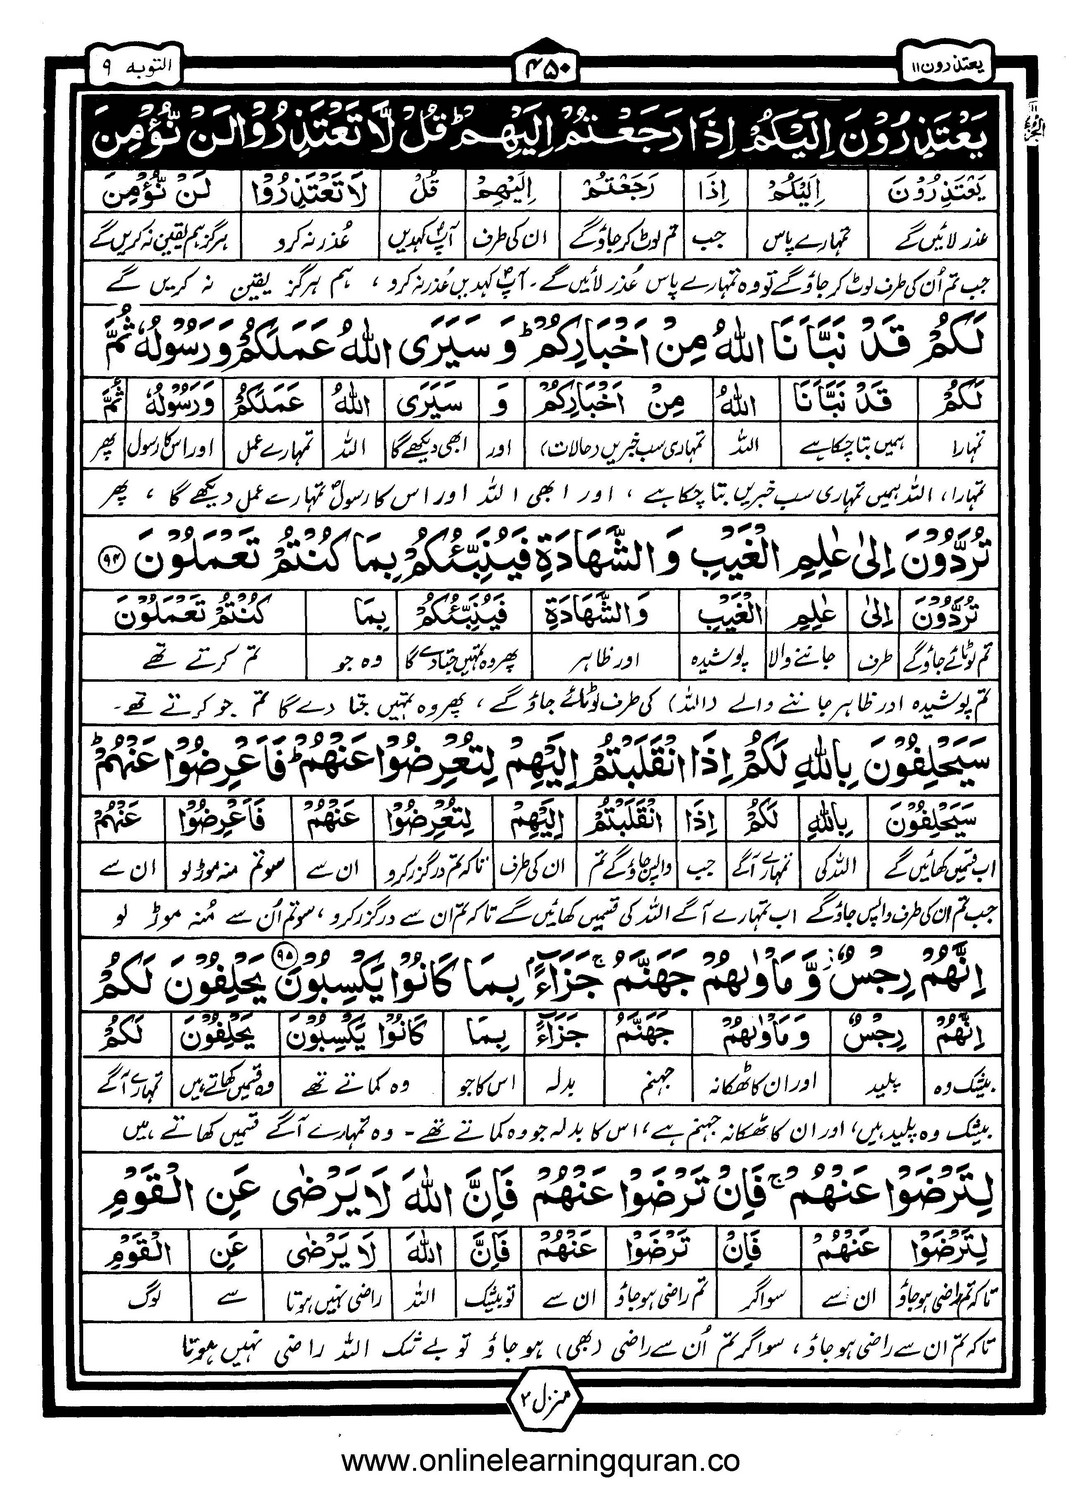 یعتذرون ۱۱
۴۵۰
التوبہ ۹
الجزء ۱۱
يَعْتَذِرُوْنَ اِلَيْكُمْ اِذَا رَجَعْتُمْ اِلَيْهِمْ ؕ قُلْ لَّا تَعْتَذِرُوْا لَنْ نُّؤْمِنَ
يَعْتَذِرُوْنَ اِلَيْكُمْ اِذَا رَجَعْتُمْ اِلَيْهِمْ قُلْ لَا تَعْتَذِرُوْا لَنْ نُّؤْمِنَ
عذر لائیں گے تمہارے پاس جب تم لوٹ کر جاؤ گے ان کی طرف آپؐ کہدیں عُذر نہ کرو ہرگز ہم یقین نہ کریں گے
جب تم اُن کی طرف لوٹ کر جاؤ گے تو وہ تمہارے پاس عُذر لائیں گے۔ آپؐ کہدیں عُذر نہ کرو ، ہم ہرگز یقین نہ کریں گے
لَكُمْ قَدْ نَبَّاَنَا اللّٰهُ مِنْ اَخْبَارِكُمْ ؕ وَ سَيَرَى اللّٰهُ عَمَلَكُمْ وَ رَسُوْلُهٗ ثُمَّ
لَكُمْ قَدْ نَبَّاَنَا اللّٰهُ مِنْ اَخْبَارِكُمْ وَ سَيَرَى اللّٰهُ عَمَلَكُمْ وَرَسُوْلُهٗ ثُمَّ
تمہارا ہمیں بتا چکا ہے اللہ تمہاری سب خبریں (حالات) اور ابھی دیکھے گا اللہ تمہارے عمل اور اس کا رسول پھر
تمہارا، اللہ ہمیں تمہاری سب خبریں بتا چکا ہے ، اور ابھی اللہ اور اس کا رسولؐ تمہارے عمل دیکھے گا ، پھر
تُرَدُّوْنَ اِلٰى عٰلِمِ الْغَيْبِ وَ الشَّهَادَةِ فَيُنَبِّئُكُمْ بِمَا كُنْتُمْ تَعْمَلُوْنَ ۹۴
تُرَدُّوْنَ اِلٰى عٰلِمِ الْغَيْبِ وَالشَّهَادَةِ فَيُنَبِّئُكُمْ بِمَا كُنْتُمْ تَعْمَلُوْنَ
تم لوٹائے جاؤ گے طرف جاننے والا پوشیدہ اور ظاہر پھر وہ تمہیں جتا دے گا وہ جو تم کرتے تھے
تم پوشیدہ اور ظاہر جاننے والے (اللہ) کی طرف لوٹائے جاؤ گے ، پھر وہ تمہیں جتا دے گا تم جو کرتے تھے۔
سَيَحْلِفُوْنَ بِاللّٰهِ لَكُمْ اِذَا انْقَلَبْتُمْ اِلَيْهِمْ لِتُعْرِضُوْا عَنْهُمْ ؕ فَاَعْرِضُوْا عَنْهُمْ ؕ
سَيَحْلِفُوْنَ بِاللّٰهِ لَكُمْ اِذَا انْقَلَبْتُمْ اِلَيْهِمْ لِتُعْرِضُوْا عَنْهُمْ فَاَعْرِضُوْا عَنْهُمْ
اب قسمیں کھائیں گے اللہ کی تمہارے آگے جب واپس جاؤ گے تم ان کی طرف تاکہ تم درگزر کرو ان سے سو تم منہ موڑ لو ان سے
جب تم ان کی طرف واپس جاؤ گے اب تمہارے آگے اللہ کی قسمیں کھائیں گے تاکہ تم ان سے درگزر کرو ، سو تم اُن سے مُنہ موڑ لو
اِنَّهُمْ رِجْسٌ ؗ وَّ مَاْوٰىهُمْ جَهَنَّمُ ۚ جَزَآءًۢ بِمَا كَانُوْا يَكْسِبُوْنَ ۹۵ يَحْلِفُوْنَ لَكُمْ
اِنَّهُمْ رِجْسٌ وَ مَاْوٰىهُمْ جَهَنَّمُ جَزَآءً بِمَا كَانُوْا يَكْسِبُوْنَ يَحْلِفُوْنَ لَكُمْ
بیشک وہ پلید اور ان کا ٹھکانہ جہنم بدلہ اس کا جو وہ کماتے تھے وہ قسمیں کھاتے ہیں تمہارے آگے
بیشک وہ پلید ہیں، اور ان کا ٹھکانہ جہنم ہے، اس کا بدلہ جو وہ کماتے تھے۔ وہ تمہارے آگے قسمیں کھاتے ہیں
لِتَرْضَوْا عَنْهُمْ ۚ فَاِنْ تَرْضَوْا عَنْهُمْ فَاِنَّ اللّٰهَ لَا يَرْضٰى عَنِ الْقَوْمِ
لِتَرْضَوْا عَنْهُمْ فَاِنْ تَرْضَوْا عَنْهُمْ فَاِنَّ اللّٰهَ لَا يَرْضٰى عَنِ الْقَوْمِ
تاکہ تم راضی ہو جاؤ ان سے سو اگر تم راضی ہو جاؤ ان سے تو بیشک اللہ راضی نہیں ہوتا سے لوگ
تاکہ تم ان سے راضی ہو جاؤ ، سو اگر تم اُن سے راضی (بھی) ہو جاؤ تو بے شک اللہ راضی نہیں ہوتا
منزل ۲
www.onlinelearningquran.co